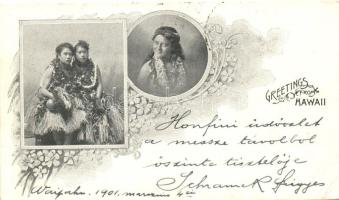 GREETINGS
FROM
HAWAII
Honfiúi üdvözlet
a messze távolból
őszinte tisztelője
Schramek
Waipahu. 1901. márczius 4én